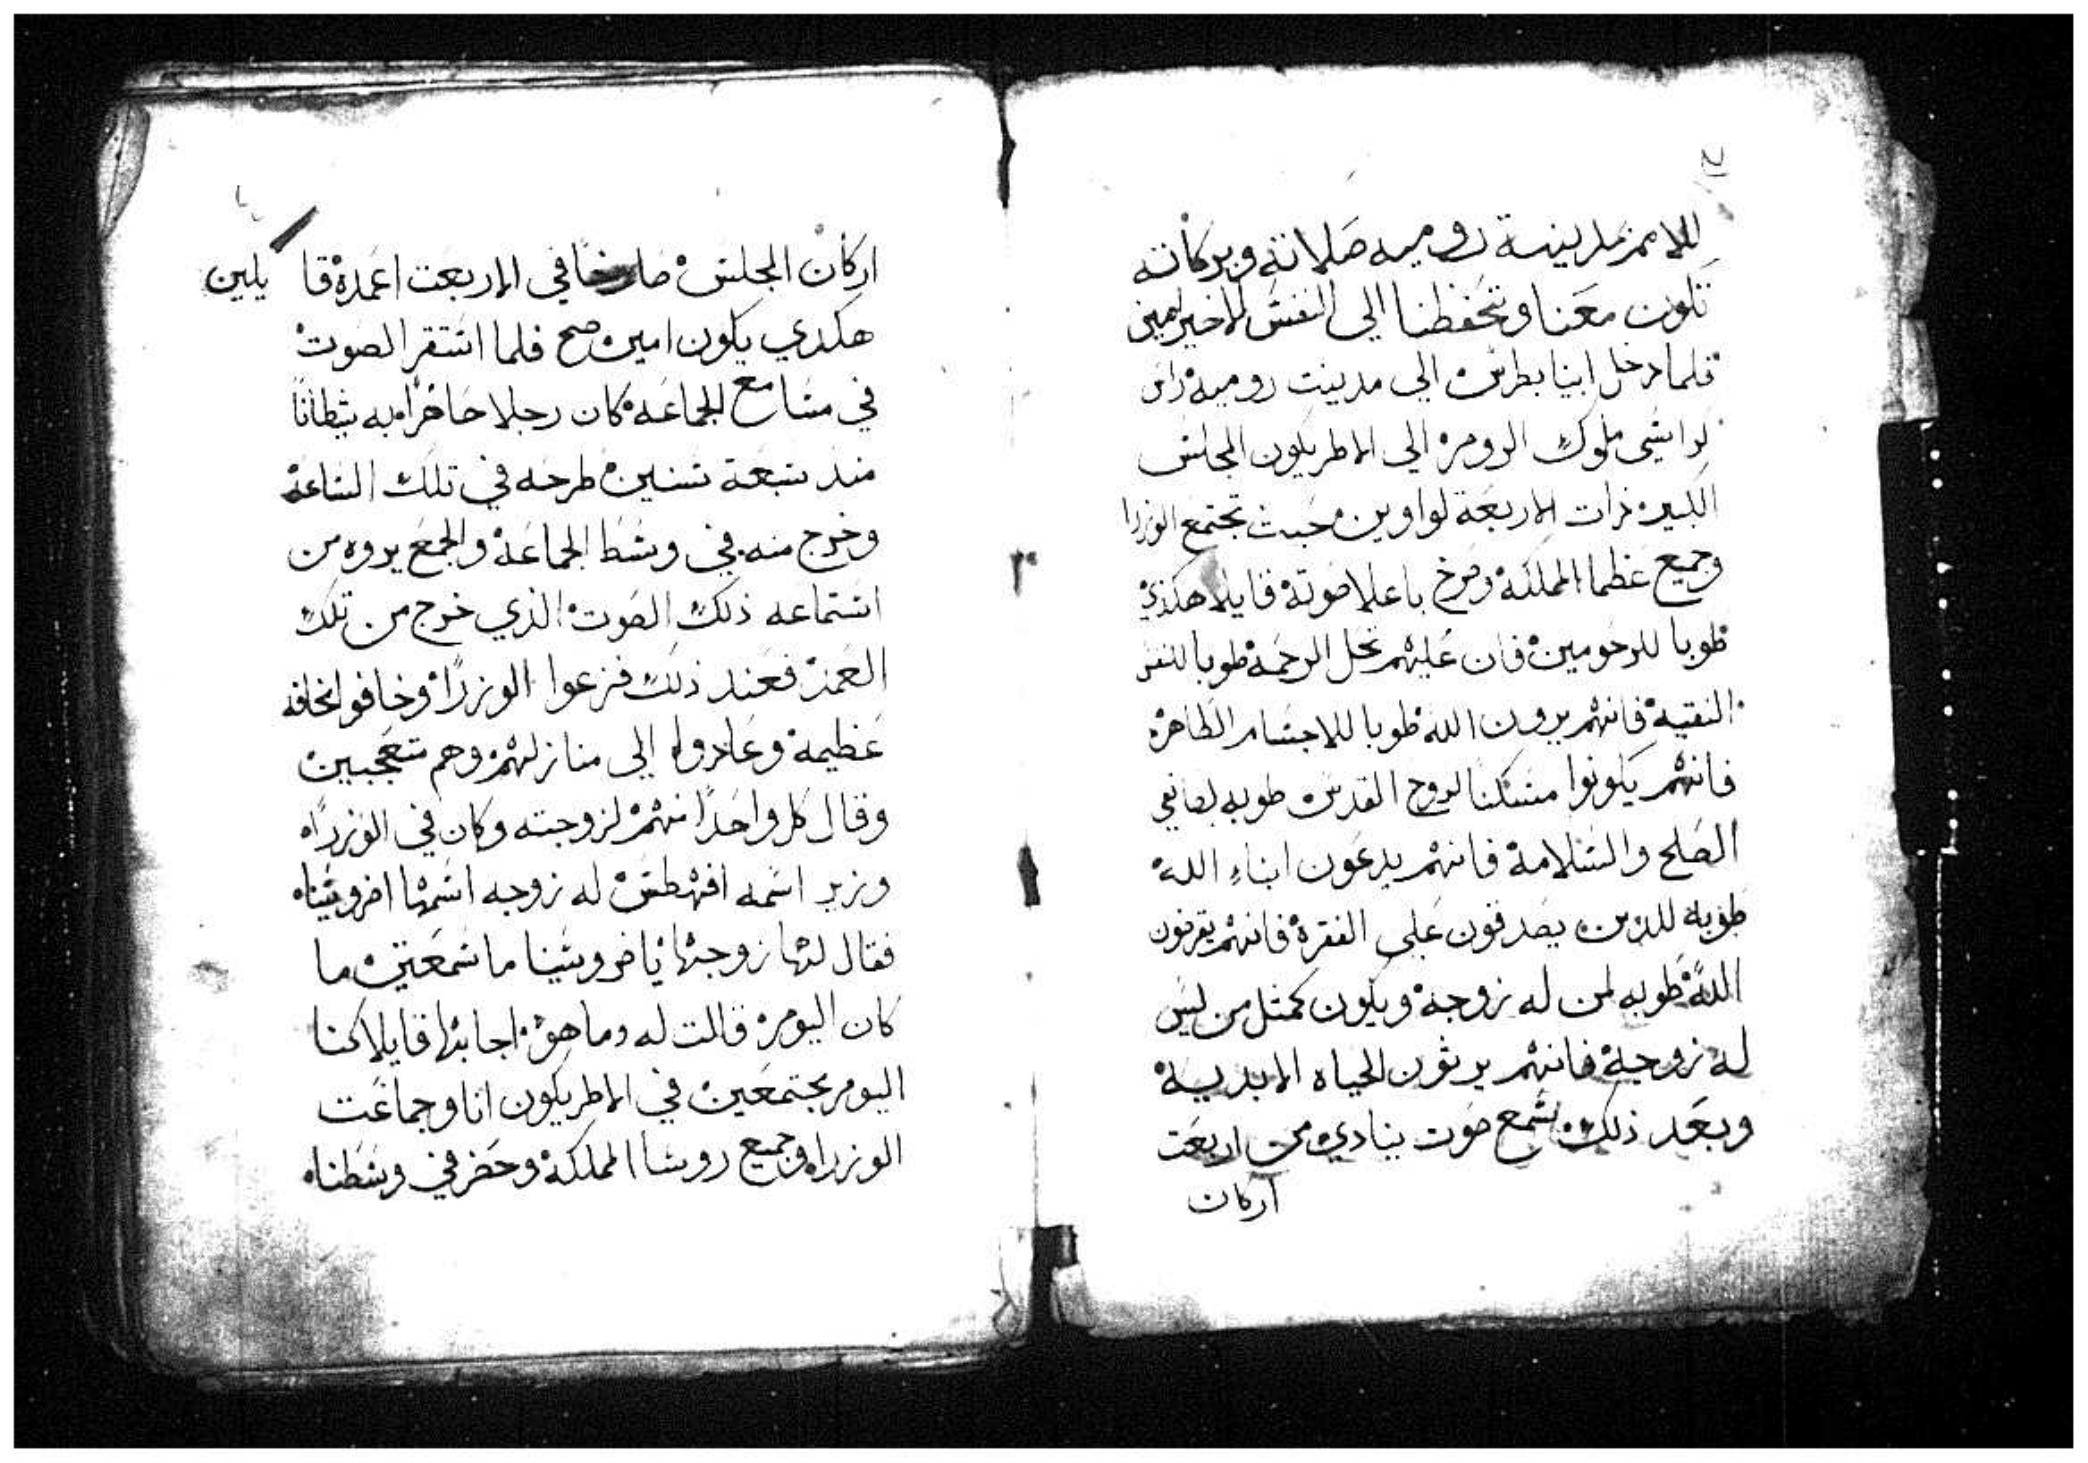 للامم بمدينة رومية صلاته وبركاته
تكون معنا وتحفظنا الي النفس الاخير امين
فلما دخل ابينا بطرس الي مدينت رومية
ملوك الروم الي الاطريكون المجلس
الكبير ذات الاربعة لواوين حيث تجتمع الوزرا
وجميع عظما المملكة وصرخ باعلا صوتة قايلا هكذي
طوبا للرحومين فان عليهم تحل الرحمة طوبا للنفس
النقية فانهم يرون الله طوبا للاجسام الطاهرة
فانهم يكونوا مسكنا لروح القدس طوبه لصانعي
الصلح والسلامة فانهم يدعون ابناء الله
طوبه للذين يصدقون علي الفقرة فانهم يقرضون
الله طوبه لمن له زوجة ويكون كمثل من ليس
له زوجة فانهم يرثون الحياه الابدية
وبعد ذلك سمع صوت ينادي من اربعت
اركان
اركان المجلس صارخا في الاربعت اعمدة قايلين
هكدي يكون امين صح فلما استقر الصوت
في مسامع الجماعة كان رجلا حاضرا به شيطانا
مند سبعة سنين طرحه في تلك الساعة
وخرج منه في وسط الجماعة والجمع يروه من
استماعه ذلك الصوت الذي خرج من تلك
العمد فعند ذلك فزعوا الوزرا وخافوا مخافه
عظيمة وعادوا الي منازلهم وهم متعجبين
وقال كل واحدا منهم لزوجته وكان في الوزراه
وزير اسمه افهطس له زوجه اسمها اضروسيناه
فقال لها زوجها يا ضروسينا ما سمعتي ما
كان اليوم قالت له وما هو اجابها قايلا كنا
اليوم مجتمعين في الاطريكون انا وجماعت
الوزراه وجميع روسا المملكة وحضر في وسطناه